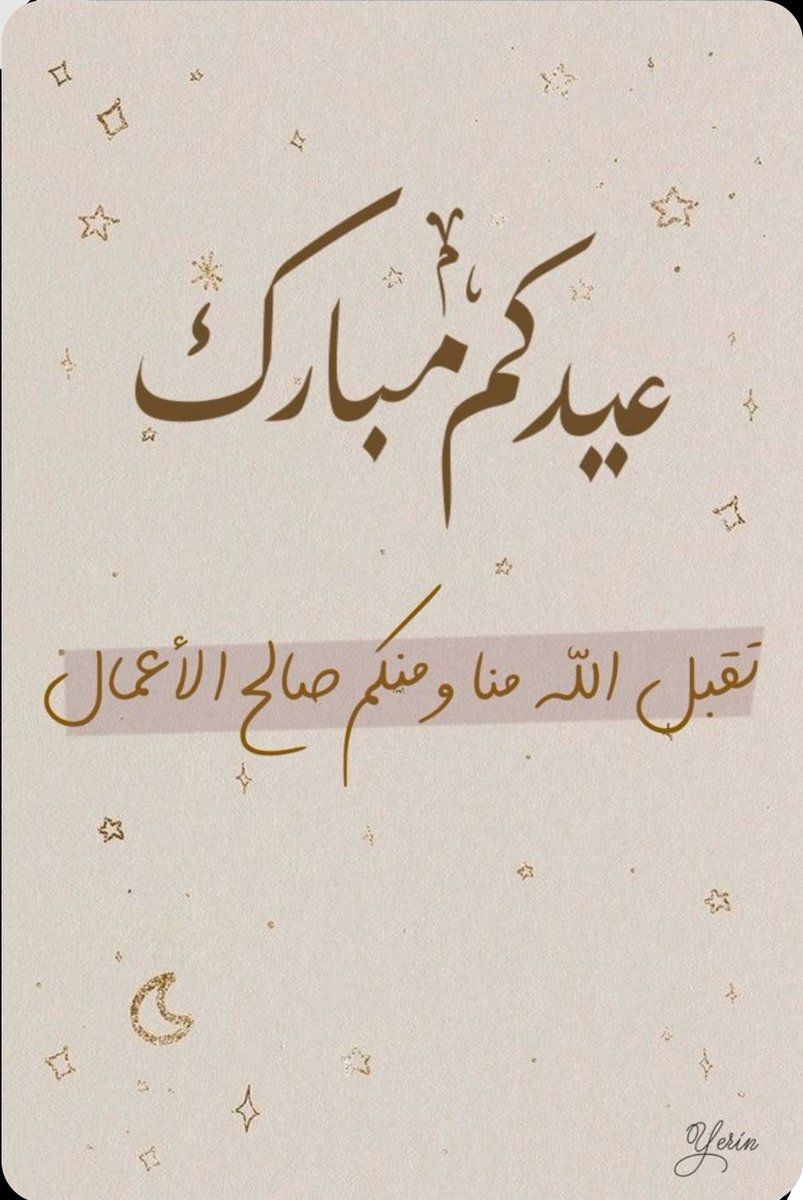 عيدكم مبارك
تقبل الله منا ومنكم صالح الأعمال
Yerin